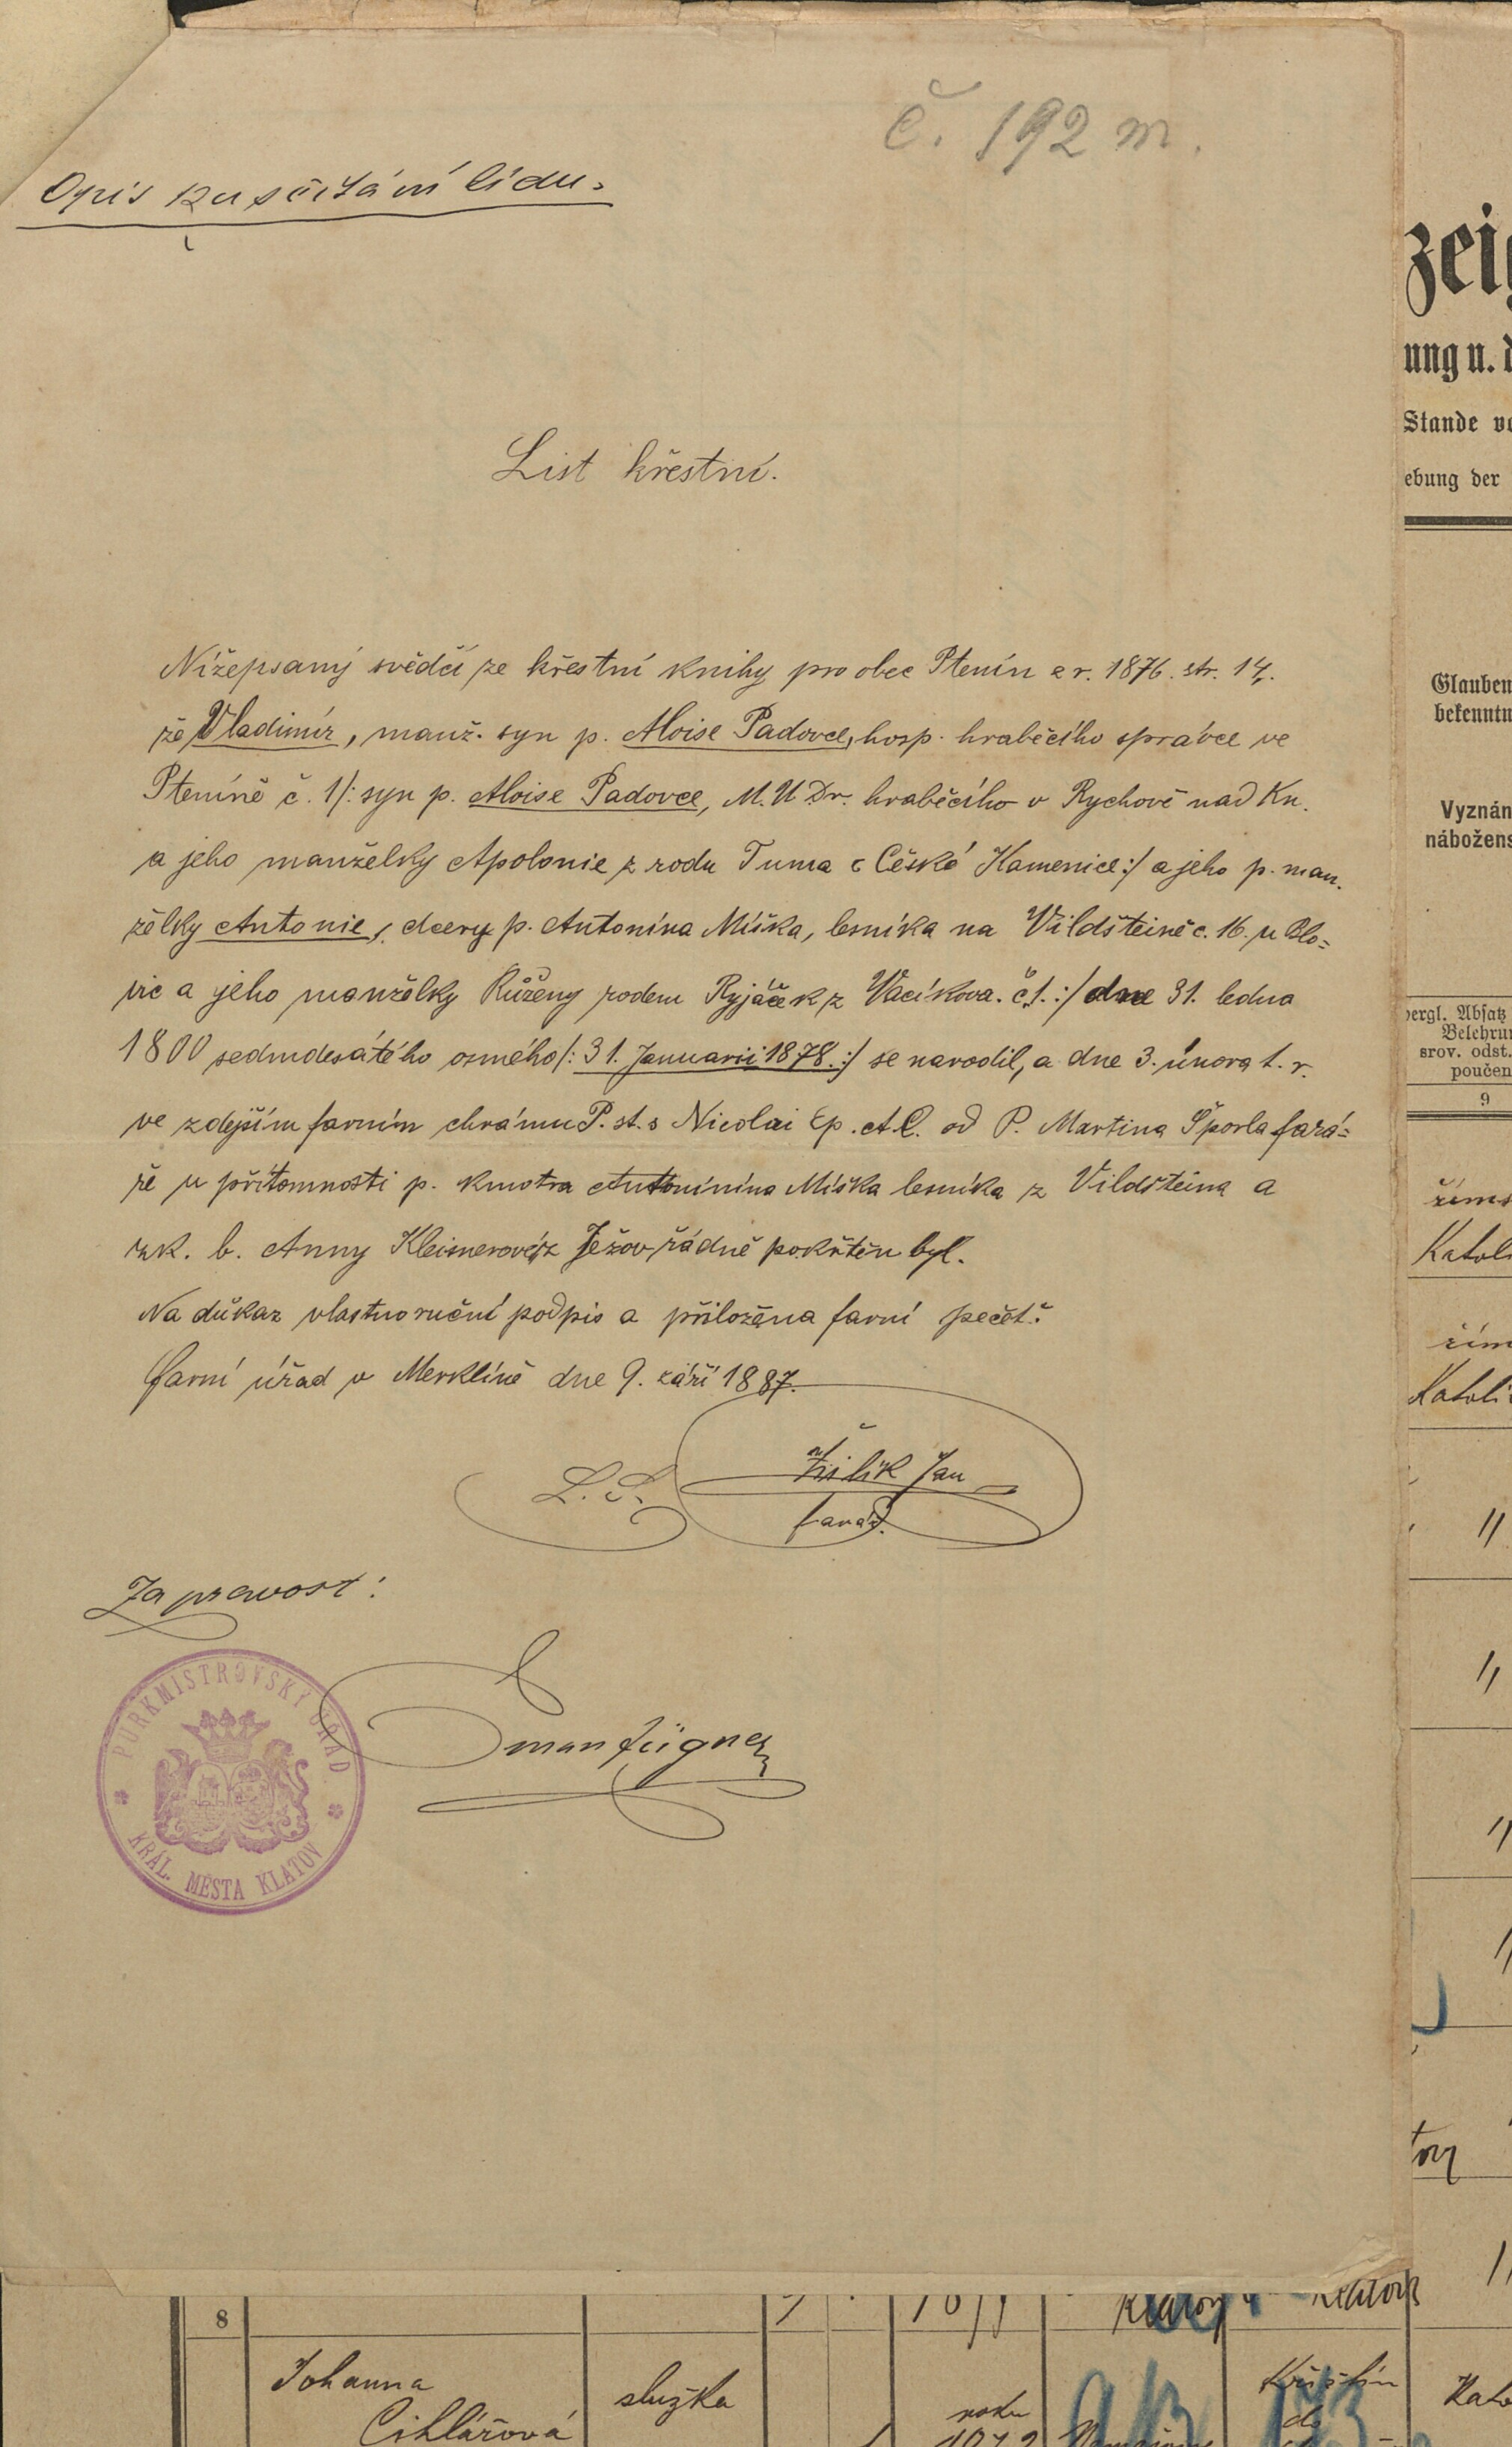 č. 192 m.
Opis ku sčítání lidu.
List křestní.
Nížepsaný svědčí ze křestní knihy pro obec Ptenín z r. 1876. str. 14.
že Vladimír, manž. syn p. Aloise Padovce, hosp. hraběcího správce ve
Pteníně č. 1/: syn p. Aloise Padovce, M.U.Dr. hraběcího v Rychově nad Kn.
a jeho manželky Apolonie z rodu Tuma z České Kamenice:/ a jeho p. man.
želky Antonie, dcery p. Antonína Míška, lesníka na Vildšteině č. 16. u Blo=
vic a jeho manželky Růženy rodem Ryjáček z Vacíkova. č.1.:/ dne 31. ledna
1800 sedmdesátého osmého/: 31. Januarii 1878.:/ se narodil, a dne 3. února t. r.
ve zdejším farním chrámu P. st. s Nicolai Ep. et C. od P. Martina Šporla fará=
ře u přítomnosti p. kmotra Antonínína Míška lesníka z Vildšteina a
b. Anny Kleisnerové z Ježov řádně pokřtěn byl.
Na důkaz vlastnoruční podpis a přiložena farní pečeť.
Farní úřad v Merklíně dne 9. září 1887.
L.S. Žišlík Jan
farář.
Za pravost:
PURKMISTROVSKÝ ÚŘAD
KRÁL. MĚSTA KLATOV
zeig
ung u. d
Stande vo
ebung der
Glauben
bekenntn
Vyznán
nábožens
vergl. Absatz
Belehrun
srov. odst.
poučen
9
říms
Katol
řím
Katoli
"
"
"
"
"
8
Klatovy
Klatovy
Johanna
Cihlářová
služka
roku
do
Kato